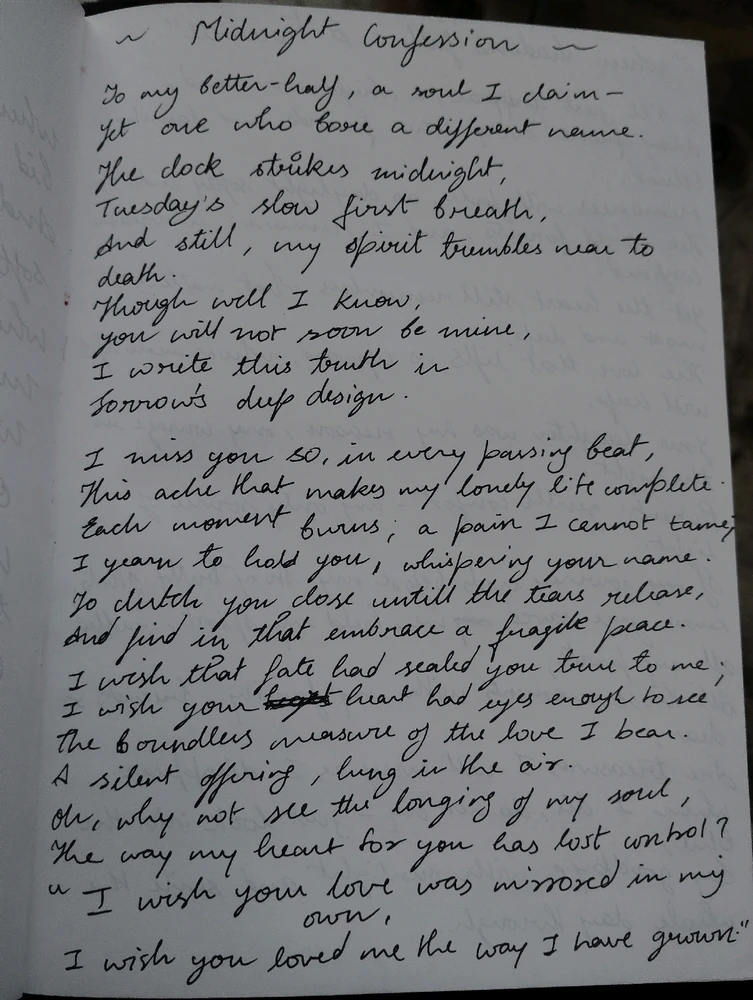 ~ Midnight Confession ~
To my better-half, a soul I claim-
Yet one who bore a different name.
The clock strikes midnight,
Tuesday's slow first breath,
And still, my spirit trembles near to
death.
Though well I know,
you will not soon be mine,
I write this truth in
Sorrow's deep design.
I miss you so, in every passing beat,
This ache that makes my lonely life complete.
Each moment burns; a pain I cannot tame;
I yearn to hold you, whispering your name.
To clutch you close untill the tears release,
And find in that embrace a fragile peace.
I wish that fate had sealed you true to me;
I wish your heart had eyes enough to see
The boundless measure of the love I bear.
A silent offering, hung in the air.
Oh, why not see the longing of my soul,
The way my heart for you has lost control?
" I wish your love was mirrored in my
own,
I wish you loved me the way I have grown."